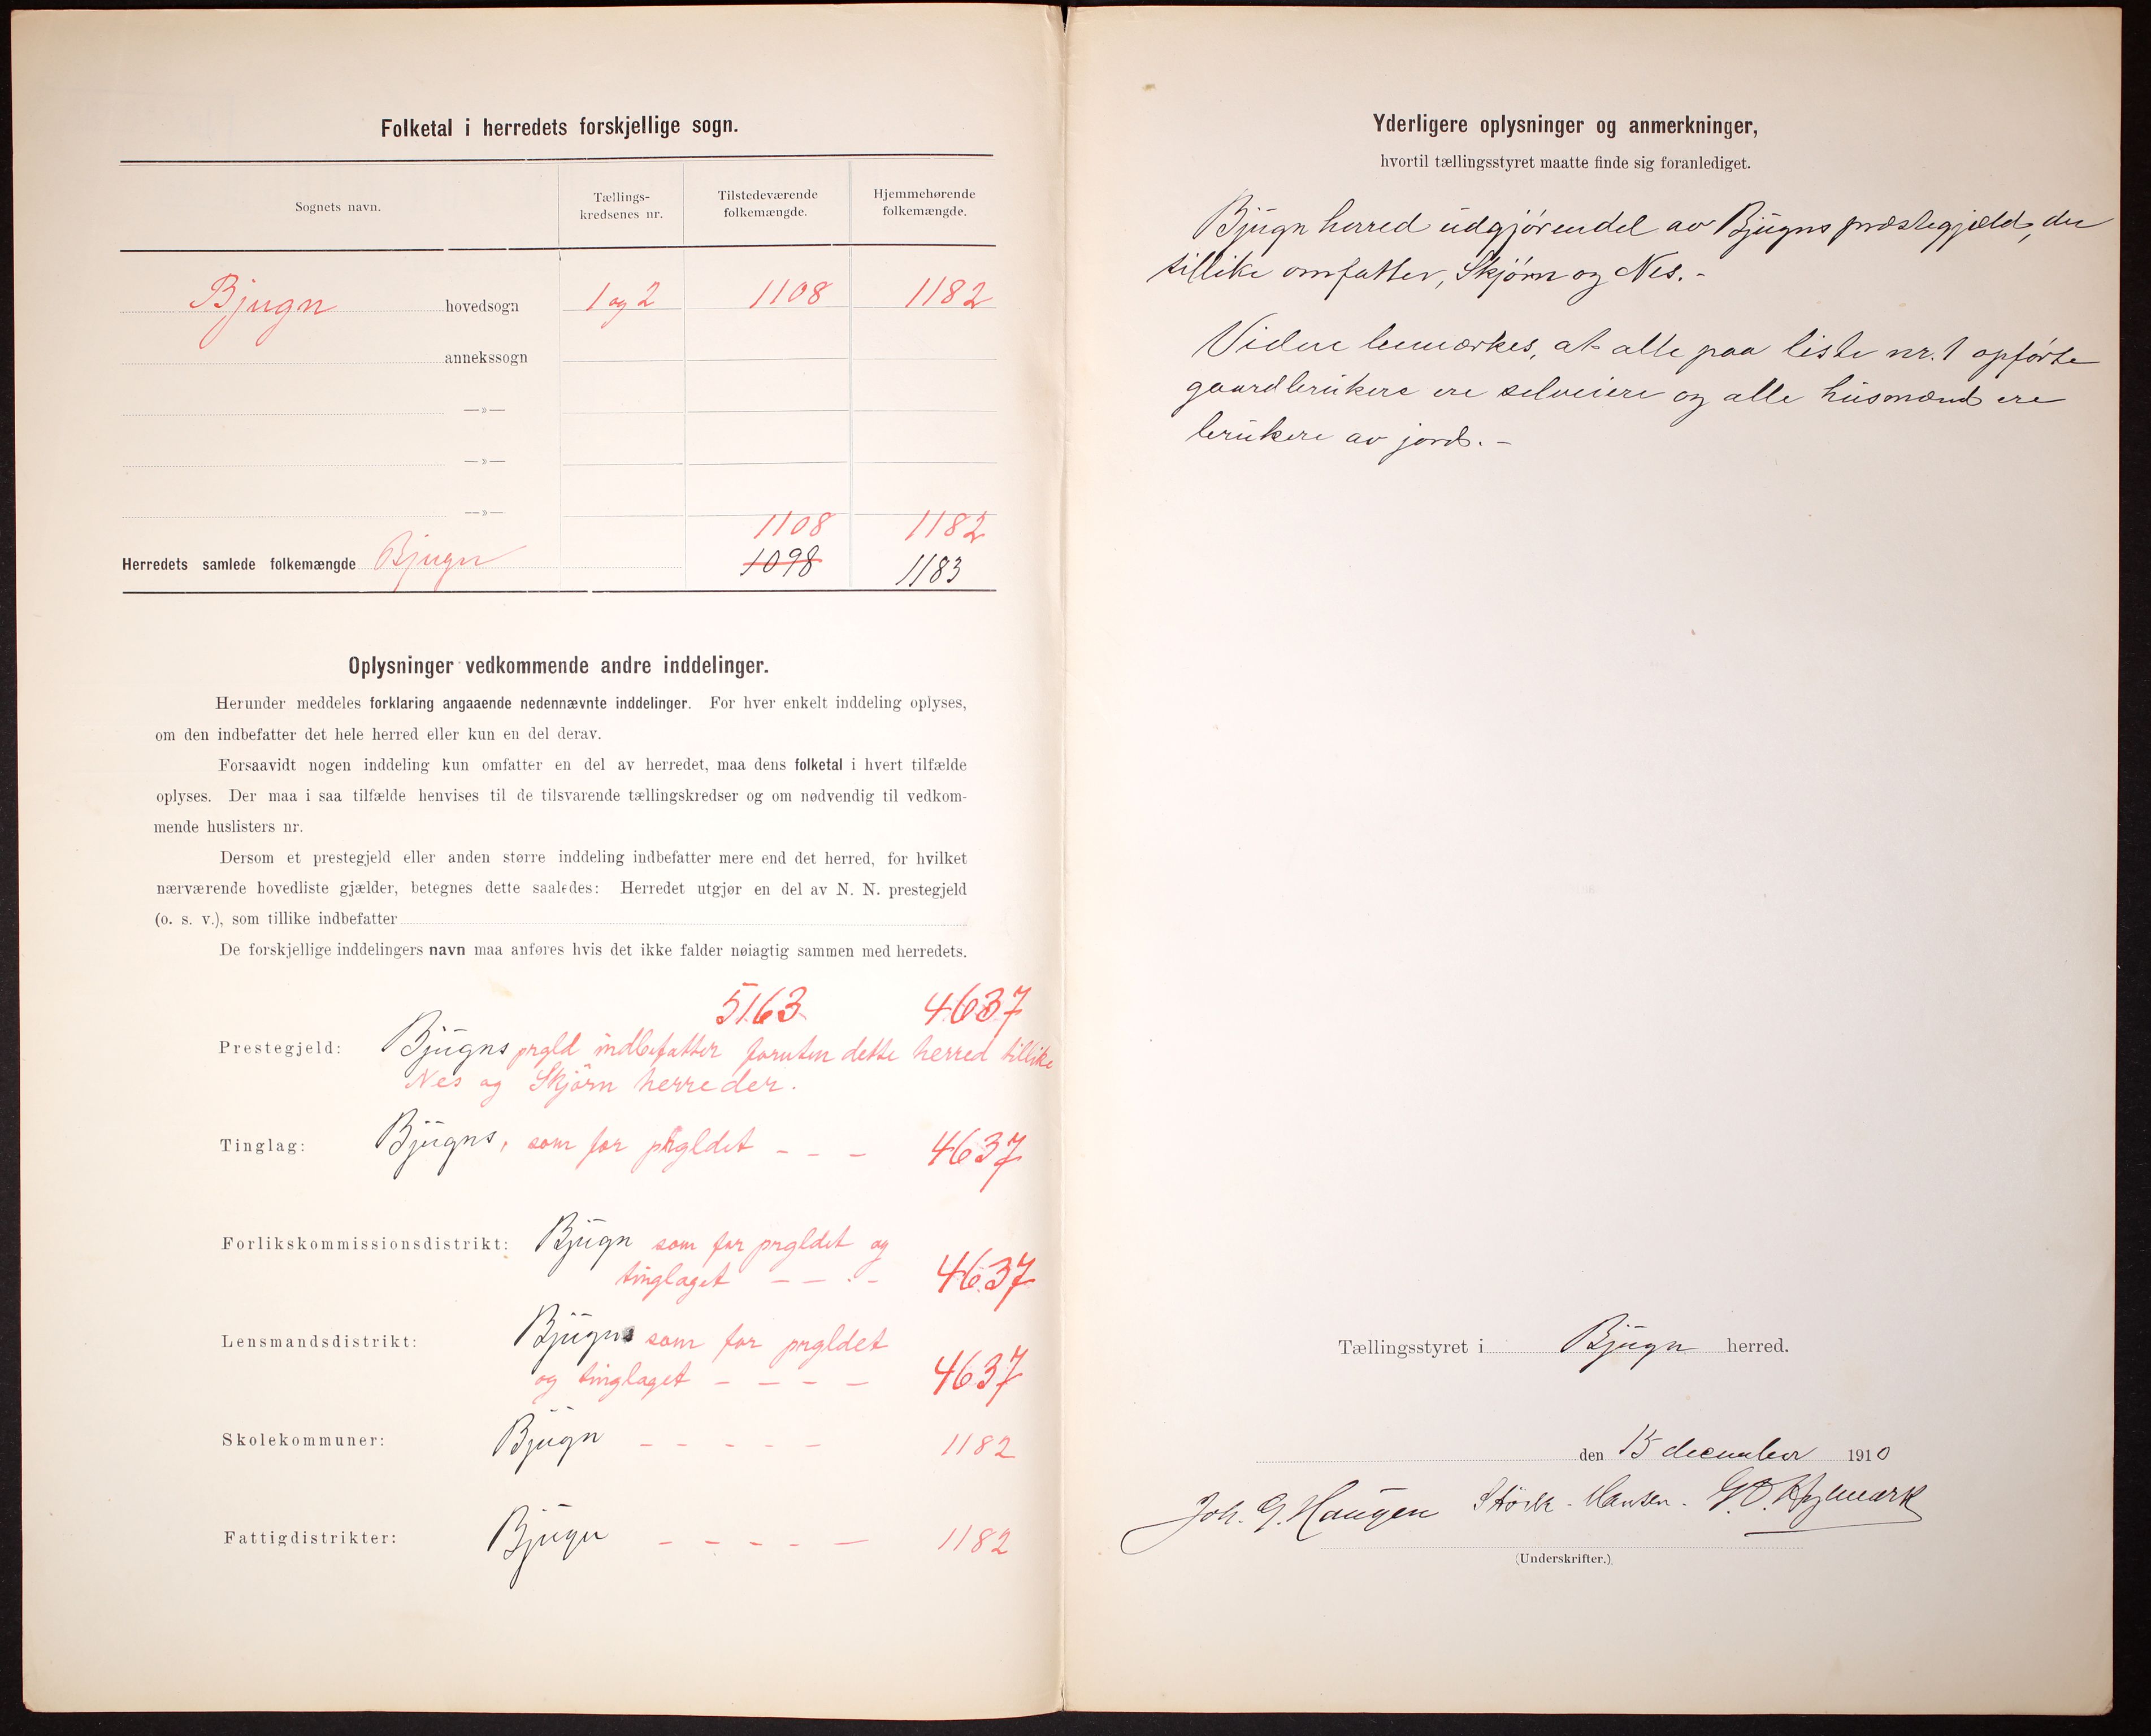 Folketal i herredets forskjellige sogn.
Sognets navn.
Tællings-
kredsenes nr.
Tilstedeværende
folkemængde.
Hjemmehørende
folkemængde.
Bjugn hovedsogn 1 og 2 1108 1182
annekssogn
—»—
—»—
—»—
1108 1182
Herredets samlede folkemængde Bjugn 1098 1183
Oplysninger vedkommende andre inddelinger.
Herunder meddeles forklaring angaaende nedennævnte inddelinger. For hver enkelt inddeling oplyses,
om den indbefatter det hele herred eller kun en del derav.
Forsaavidt nogen inddeling kun omfatter en del av herredet, maa dens folketal i hvert tilfælde
oplyses. Der maa i saa tilfælde henvises til de tilsvarende tællingskredser og om nødvendig til vedkom-
mende huslisters nr.
Dersom et prestegjeld eller anden større inddeling indbefatter mere end det herred, for hvilket
nærværende hovedliste gjælder, betegnes dette saaledes: Herredet utgjør en del av N. N. prestegjeld
(o. s. v.), som tillike indbefatter
De forskjellige inddelingers navn maa anføres hvis det ikke falder nøiagtig sammen med herredets.
5163 4637
Prestegjeld: Bjugns prgld indbefatter foruten dette herred tillike
Nes og Skjörn herreder.
Tinglag: Bjugns, som for prgldet - - - 4637
Forlikskommissionsdistrikt: Bjugn som for prgldet og
tinglaget - - - - 4637
Lensmandsdistrikt: Bjugns som for prgldet
og tinglaget - - - - 4637
Skolekommuner: Bjugn - - - - - 1182
Fattigdistrikter: Bjugn - - - - - 1182
Yderligere oplysninger og anmerkninger,
hvortil tællingsstyret maatte finde sig foranlediget.
Bjugn herred udgjør en del av Bjugns præstegjæld, der
tillike omfatter, Skjørn og Nes. -
Videre bemærkes, at alle paa liste nr. 1 opførte
gaardbrukere ere selveiere og alle husmænd ere
brukere av jord. -
Tællingsstyret i Bjugn herred.
den 15 december 1910
Joh. G. Haugen Hansen.
(Underskrifter.)